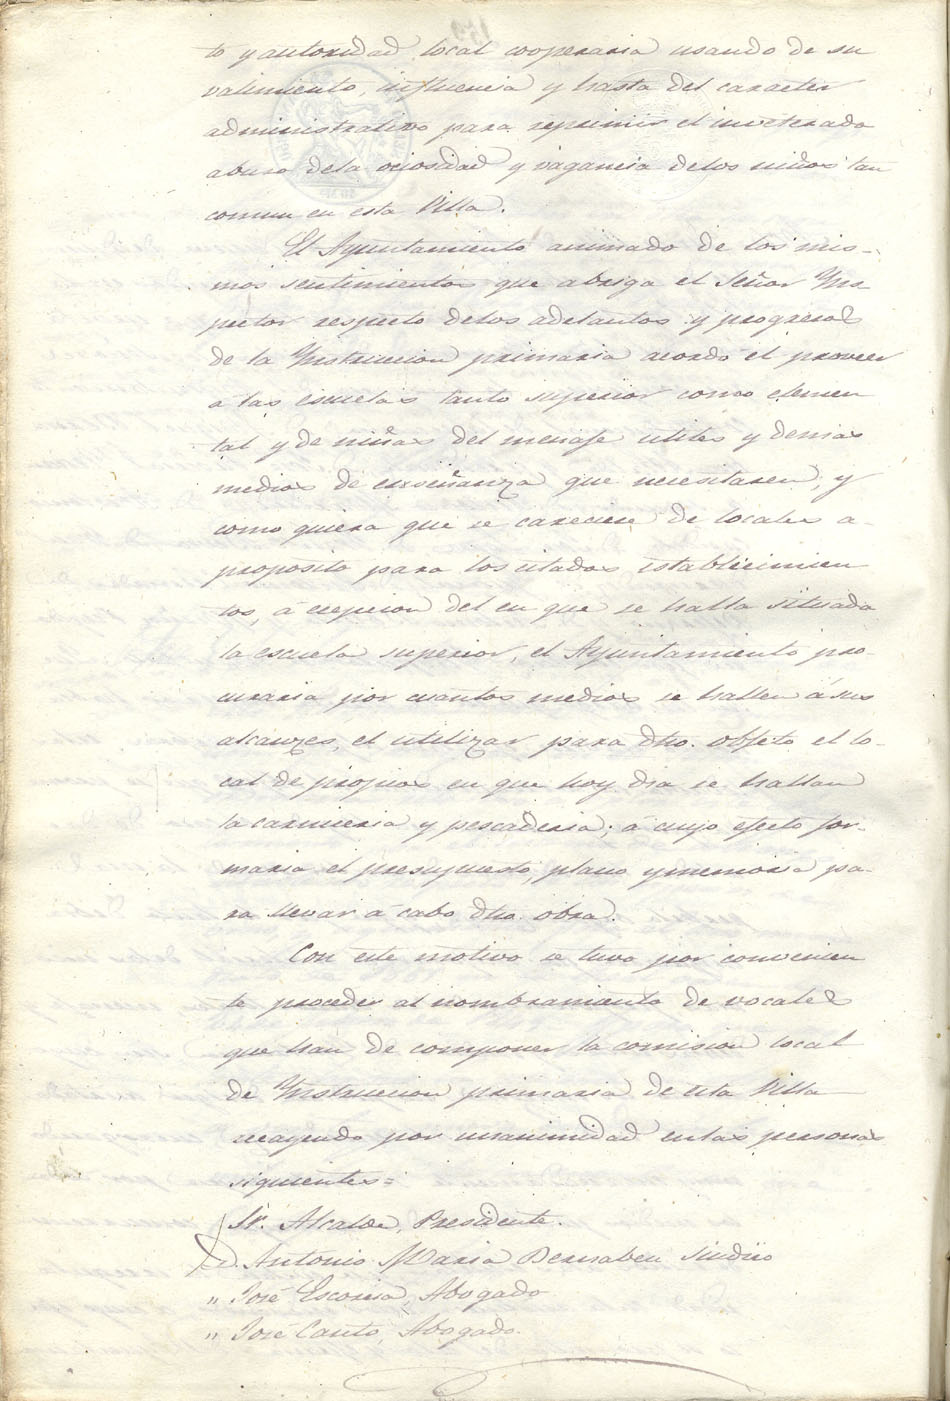 to y autoridad local cooperaria usando de su
valimiento, influencia y hasta del caracter
administrativo para reprimir el inveterado
abuso dela ociosidad y vagancia delos niños tan
comun en esta Villa.
El Ayuntamiento animado de los mis-
mos sentimientos que abriga el Señor Yns-
pector respecto delos adelantos y progresos
de la Ynstruccion primaria acordó el proveer
a las escuelas tanto superior como elemen
tal y de niñas del menaje utiles y demas
medios de enseñanza que necesitaren, y
como quiera que se careciese de locales a-
proposito para los citados establecimien
tos, á cepcion del en que se halla situada
la escuela superior, el Ayuntamiento pro-
curaria por cuantos medios se hallen á sus
alcanzes, el utilizar para dho. objeto el lo-
cal de propios en que hoy dia se hallan
la carniceria y pescaderia; á cuyo efecto for-
maria el presupuesto, plano y memoria pa-
ra llevar á cabo dha. obra.
Con este motivo se tuvo por convenien
te proceder al nombramiento de vocales
que han de componer la comision local
de Ynstruccion primaria de esta Villa
recayendo por unanimidad en las personas
siguientes=
Sr. Alcalde, Presidente.
D. Antonio Maria Bernabeu Sindico
" José Escorsa, Abogado
" José Cantó, Abogado.